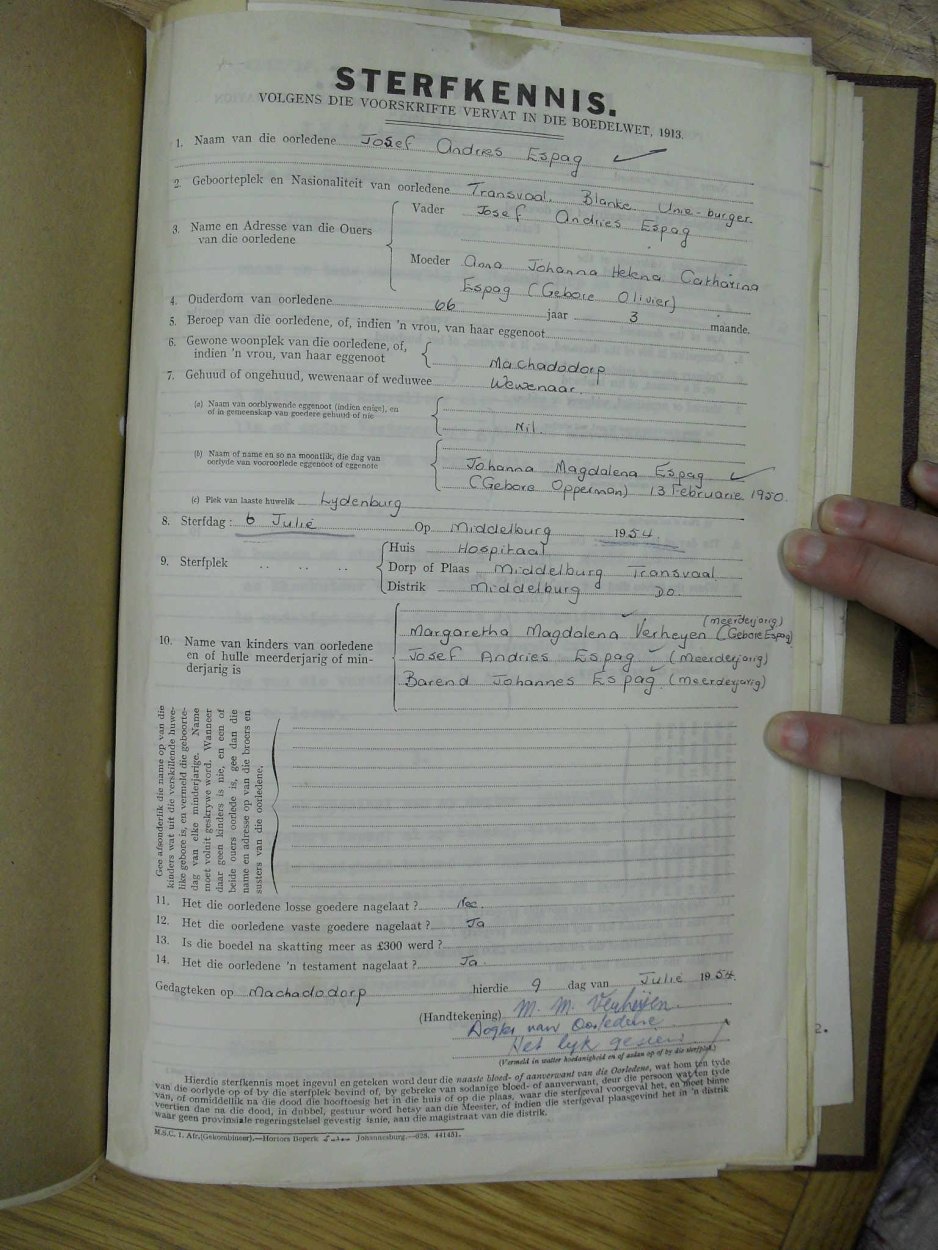 STERFKENNIS.
VOLGENS DIE VOORSKRIFTE VERVAT IN DIE BOEDELWET, 1913.
1. Naam van die oorledene Josef Andries Espag
2. Geboorteplek en Nasionaliteit van oorledene Transvaal. Blanke. Unie-burger.
3. Name en Adresse van die Ouers van die oorledene
Vader Josef Andries Espag
Moeder Anna Johanna Helena Catharina
Espag (Gebore Olivier)
4. Ouderdom van oorledene 66 jaar 3 maande.
5. Beroep van die oorledene, of, indien 'n vrou, van haar eggenoot
6. Gewone woonplek van die oorledene, of,
indien 'n vrou, van haar eggenoot Machadodorp
7. Gehuud of ongehuud, wewenaar of weduwee Wewenaar.
(a) Naam van oorblywende eggenoot (indien enige), en
of in gemeenskap van goedere gehuud of nie Nil.
(b) Naam of name en so na moontlik, die dag van
oorlyde van vooroorlede eggenoot of eggenote
Johanna Magdalena Espag
(Gebore Opperman) 13 Februarie 1950.
(c) Plek van laaste huwelik Lydenburg
8. Sterfdag: 6 Julie Op Middelburg 1954
9. Sterfplek
Huis Hospitaal
Dorp of Plaas Middelburg Transvaal
Distrik Middelburg Do.
10. Name van kinders van oorledene
en of hulle meerderjarig of min-
derjarig is
(meerderjarig)
Margaretha Magdalena Verheyen (Gebore Espag)
Josef Andries Espag (Meerderjarig)
Barend Johannes Espag. (Meerderjarig)
Gee afsonderlik die name op van die
kinders wat uit die verskillende huwe-
like gebore is, en vermeld die geboorte-
dag van elke minderjarige. Name
moet voluit geskrywe word. Wanneer
daar geen kinders is nie, en een of
beide ouers oorlede is, gee dan die
name en adresse op van die broers en
susters van die oorledene.
11. Het die oorledene losse goedere nagelaat? Nee.
12. Het die oorledene vaste goedere nagelaat? Ja
13. Is die boedel na skatting meer as £300 werd?
14. Het die oorledene 'n testament nagelaat? Ja
Gedagteken op Machadodorp hierdie 9 dag van Julie 1954.
(Handtekening) M. M. Verheyen
Dogter van Oorledene
Het lyk gesien
(Vermeld in watter hoedanigheid en of aldan op of by die sterfplek)
Hierdie sterfkennis moet ingevul en geteken word deur die naaste bloed- of aanverwant van die Oorledene, wat hom ten tyde
van die oorlyde op of by die sterfplek bevind of, by gebreke van sodanige bloed- of aanverwant, deur die persoon wat ten tyde
van, of onmiddellik na die dood die hooftoesig het in die huis of op die plaas, waar die sterfgeval voorgeval het, en moet binne
veertien dae na die dood, in dubbel, gestuur word hetsy aan die Meester, of indien die sterfgeval plaasgevind het in 'n distrik
waar geen provinsiale regeringstelsel gevestig is nie, aan die magistraat van die distrik.
M.S.C. 1. Afr.(Gekombineer).—Hortors Beperk Johannesburg.—028. 441451.
2.